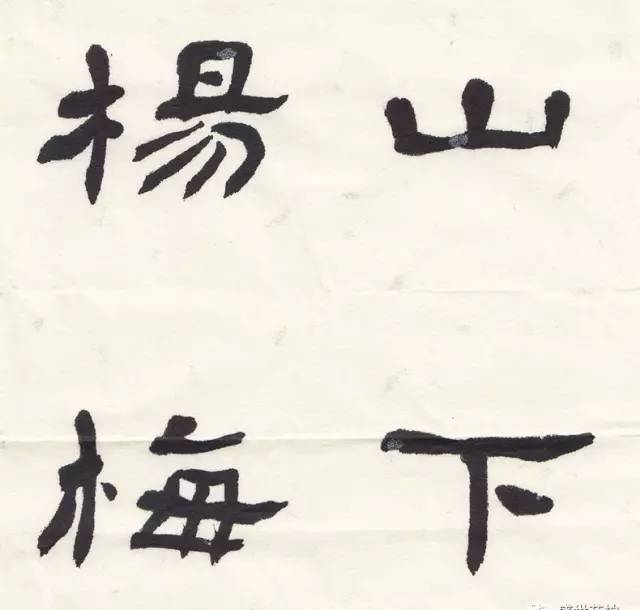 山下
楊梅